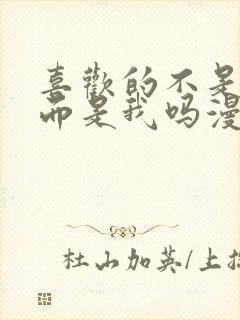 喜歡的不是
而是我吗漫
杜山加英/上掛